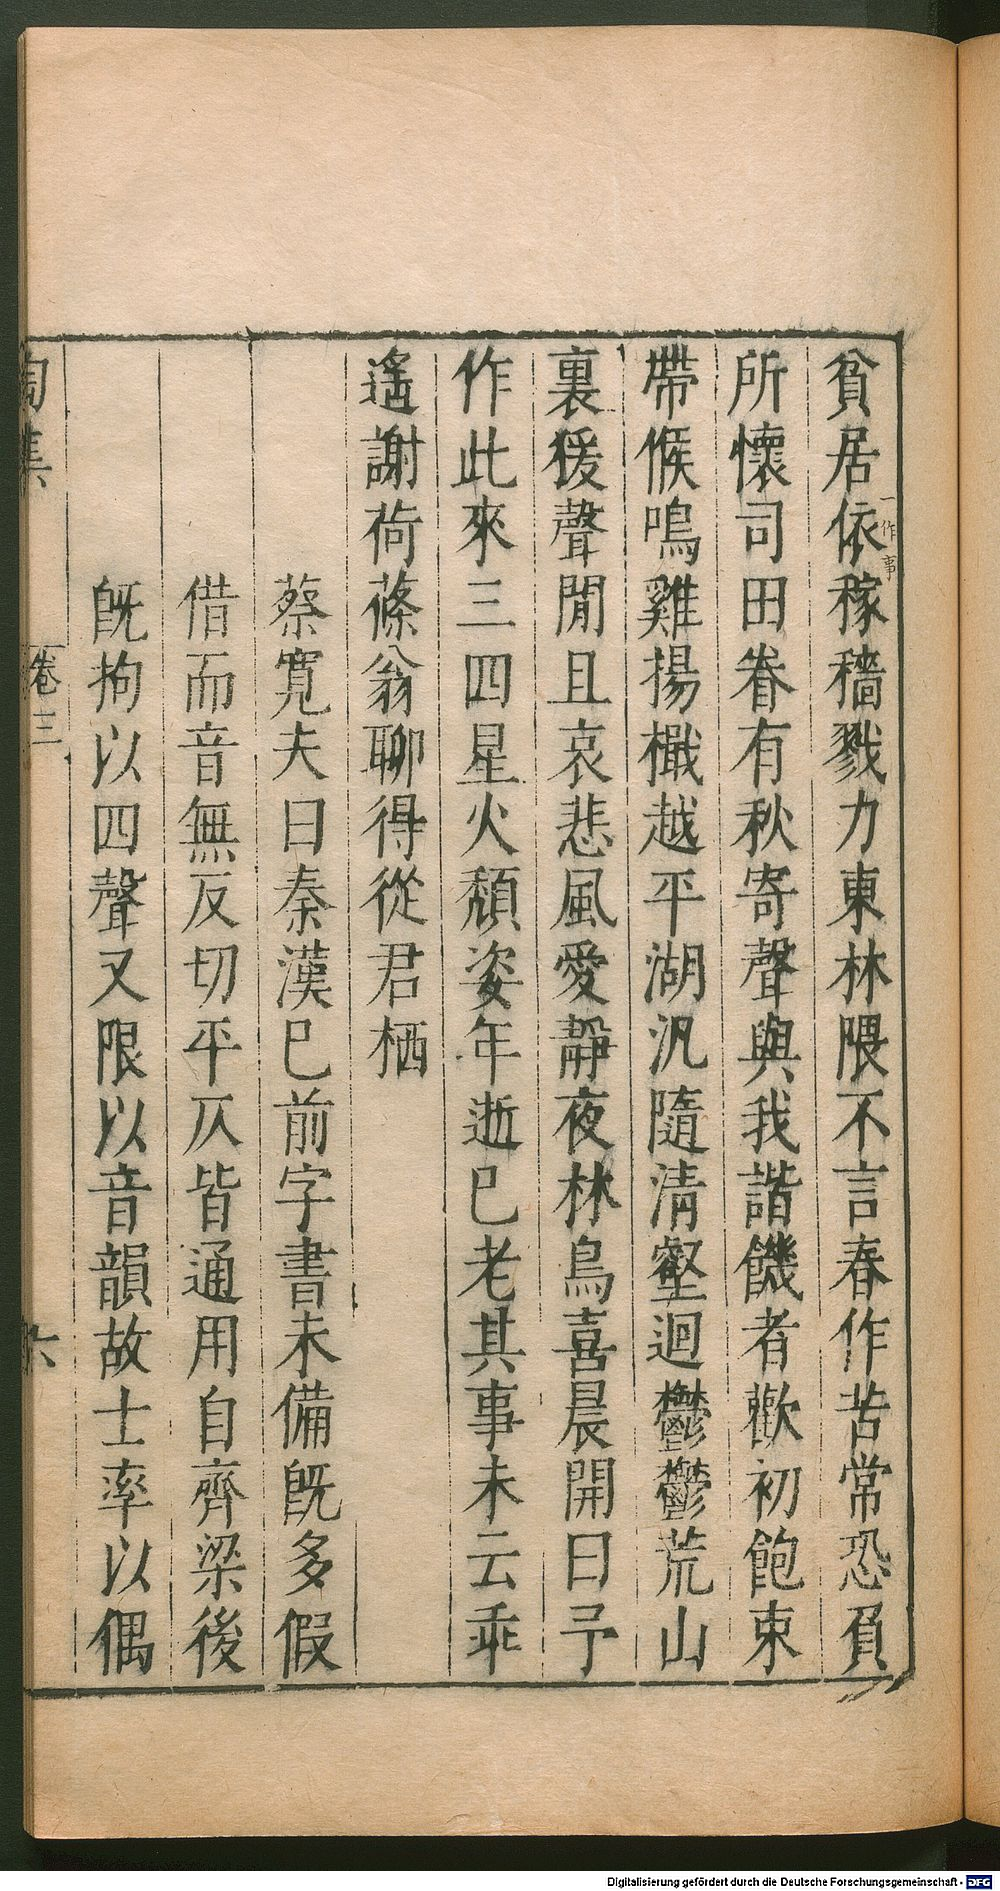 貧居依稼穡戮力東林隈不言春作苦常恐負
一作事
所懷司田眷有秋寄聲與我諧饑者歡初飽束
帶候鳴雞揚檝越平湖汎隨清壑迴鬱鬱荒山
裏猨聲閒且哀悲風愛靜夜林鳥喜晨開曰予
作此來三四星火頹姿年逝已老其事未云乖
遙謝荷蓧翁聊得從君栖
蔡寬夫曰秦漢已前字書未備旣多假
借而音無反切平仄皆通用自齊梁後
旣拘以四聲又限以音韻故士率以偶
陶集 卷三 六
Digitalisierung gefördert durch die Deutsche Forschungsgemeinschaft - DFG